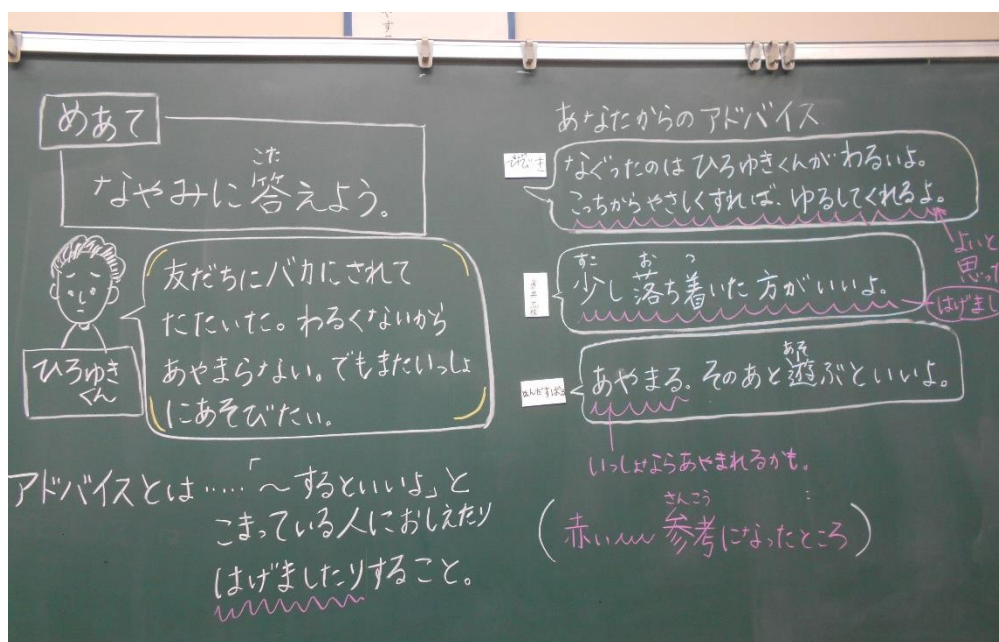 めあて
こた
なやみに答えよう。
友だちにバカにされて
たたいた。わるくないから
あやまらない。でもまたいっしょ
にあそびたい。
ひろゆき
くん
アドバイスとは……「~するといいよ」と
こまっている人におしえたり
はげましたりすること。
あなたからのアドバイス
なぐったのはひろゆきくんがわるいよ。
こっちからやさしくすれば、ゆるしてくれるよ。
よいと
思った
すこ お つ
少し落ち着いた方がいいよ。
はげまし
あそ
あやまる。そのあと遊ぶといいよ。
いっしょならあやまれるかも。
さんこう
(赤い 参考になったところ)